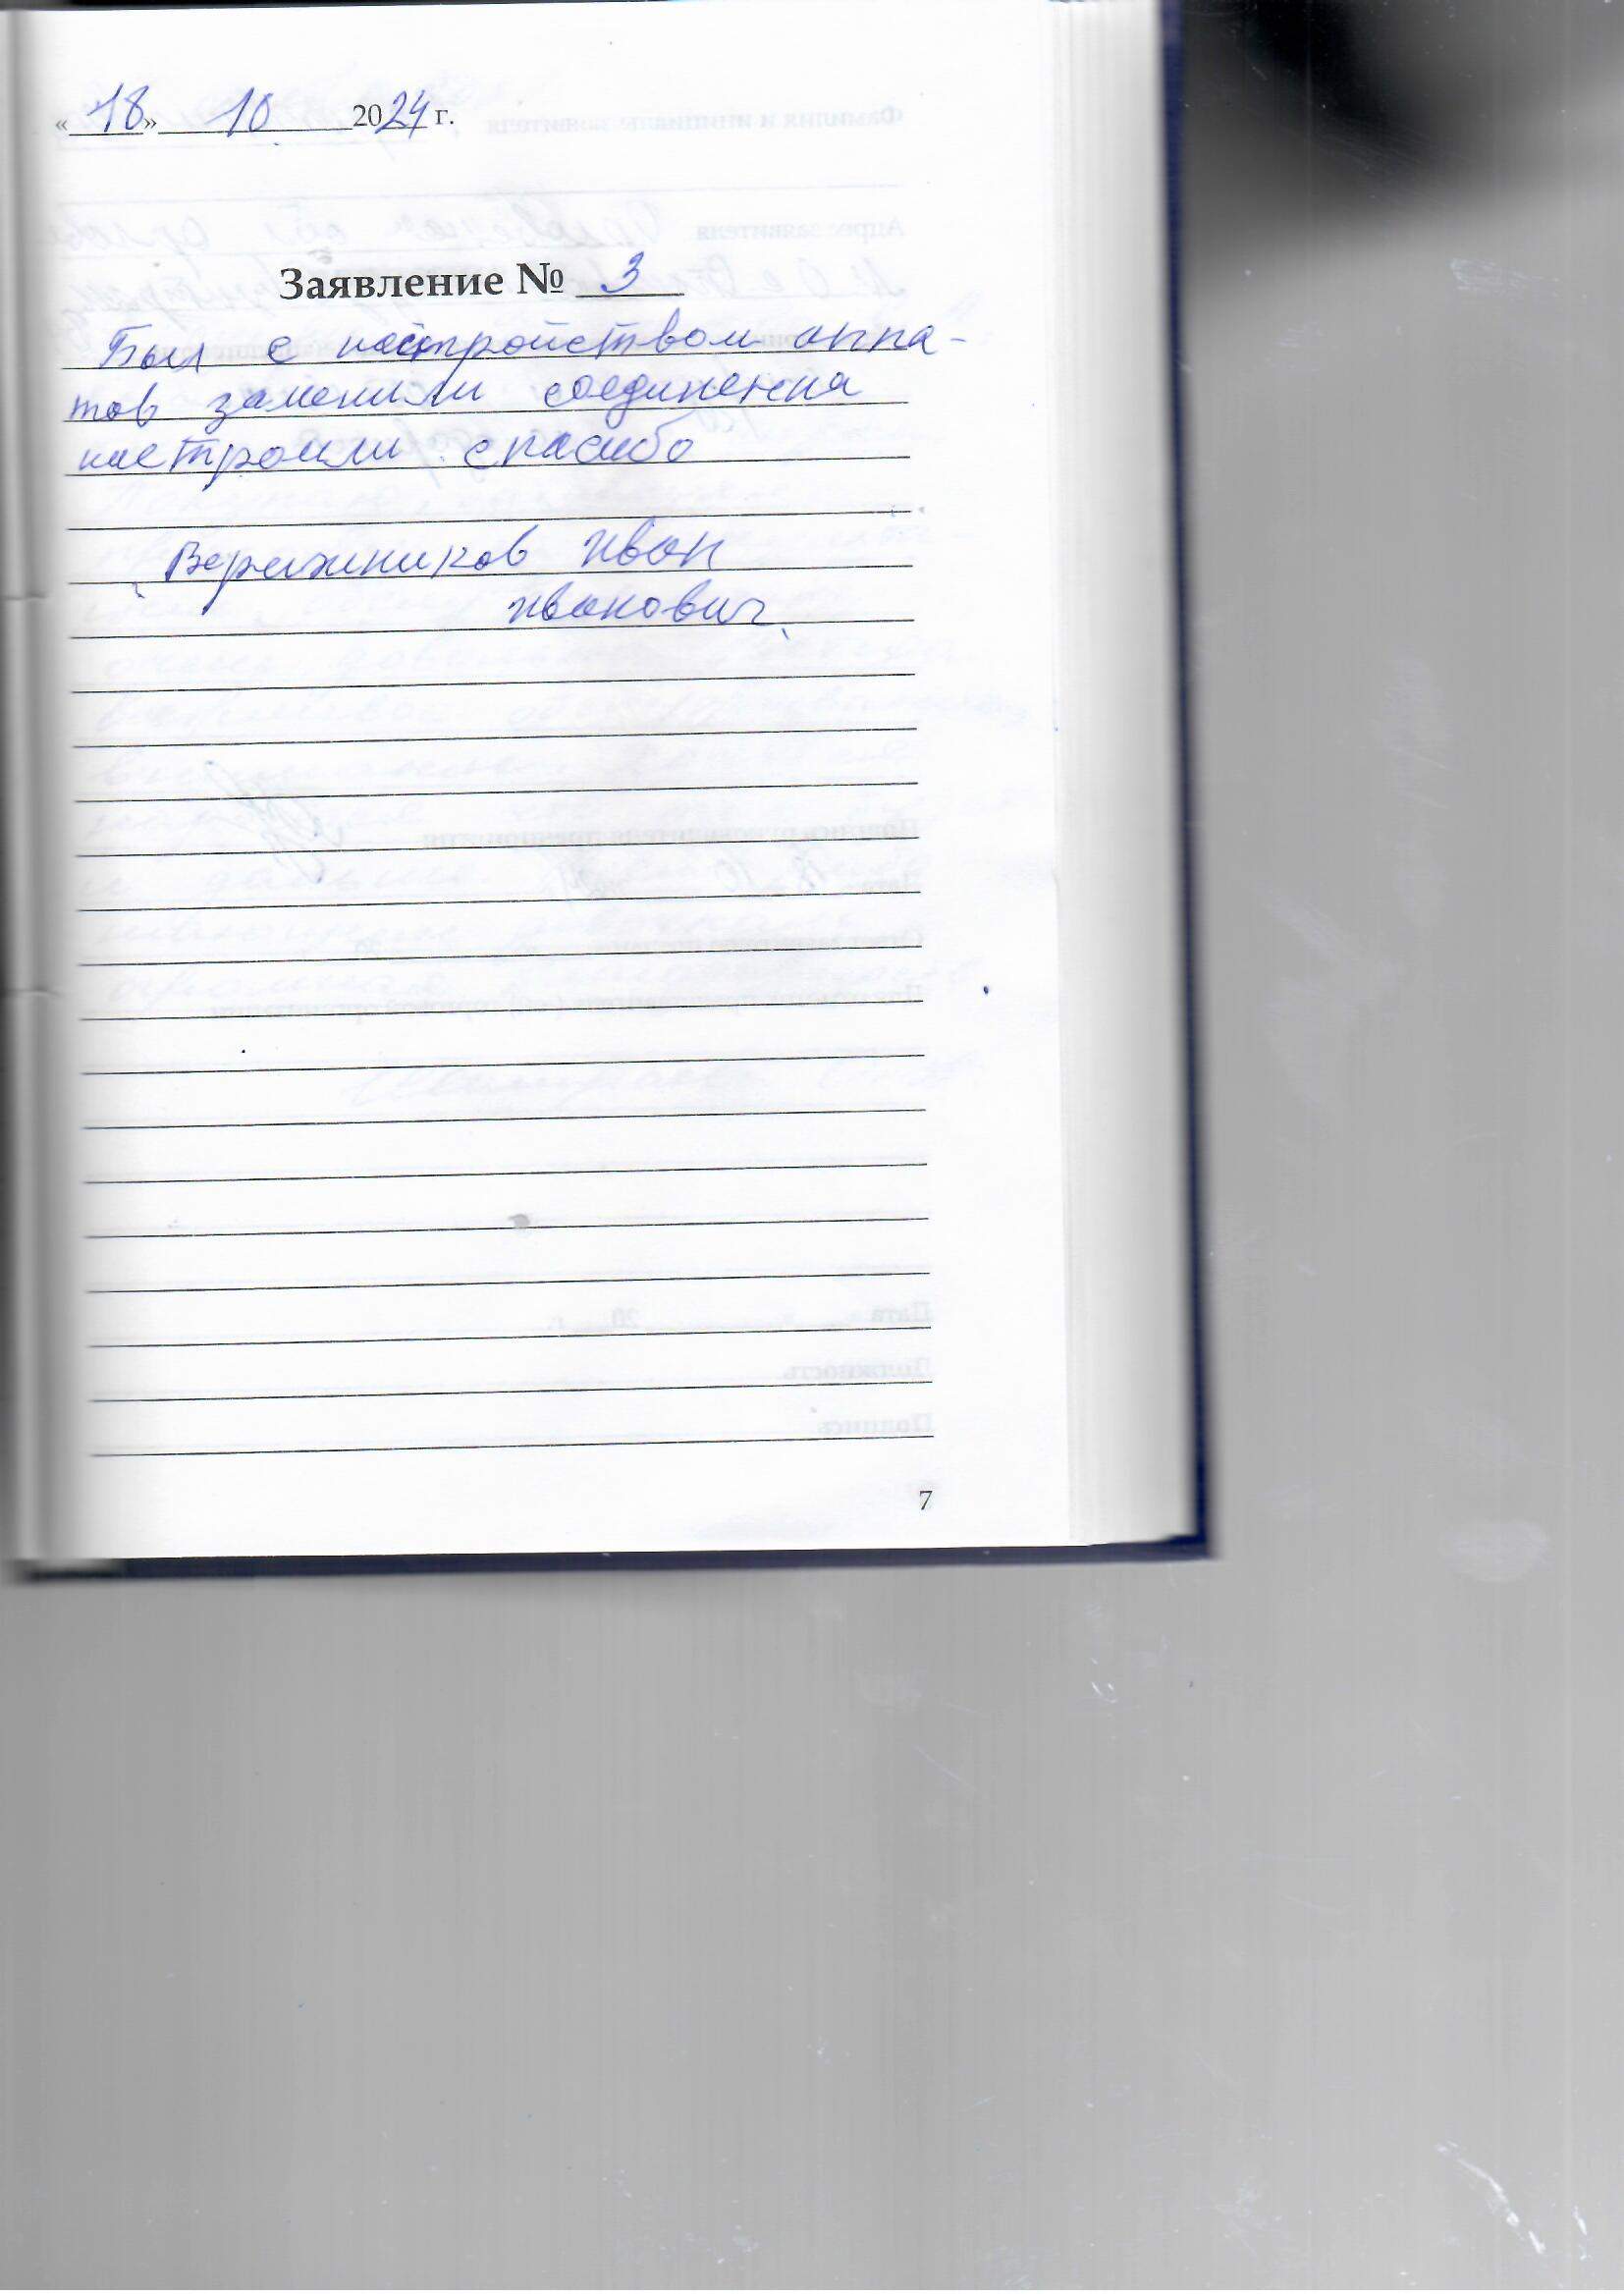 «18» 10 2024 г.
Заявление № 3
Был с настройством аппа-
тов заменили соединенна
настроили спасибо
Вережников Иван
Иванович
7